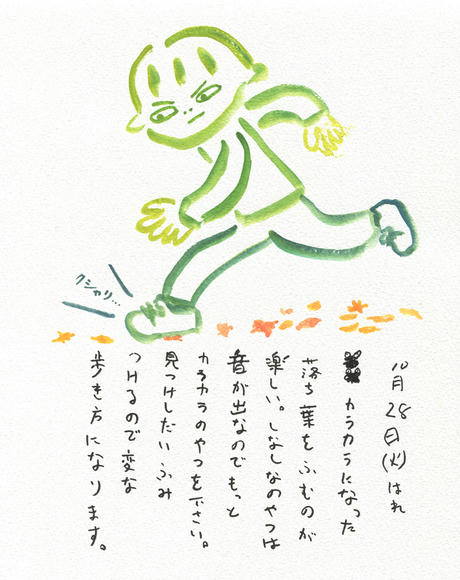 クシャリ…
10月28日(火)はれ
カラカラになった
落ち葉をふむのが
楽しい。しなしなのやつは
音が出なのでもっと
カラカラのやつを下さい。
見つけしだいふみ
つけるので変な
歩き方になります。